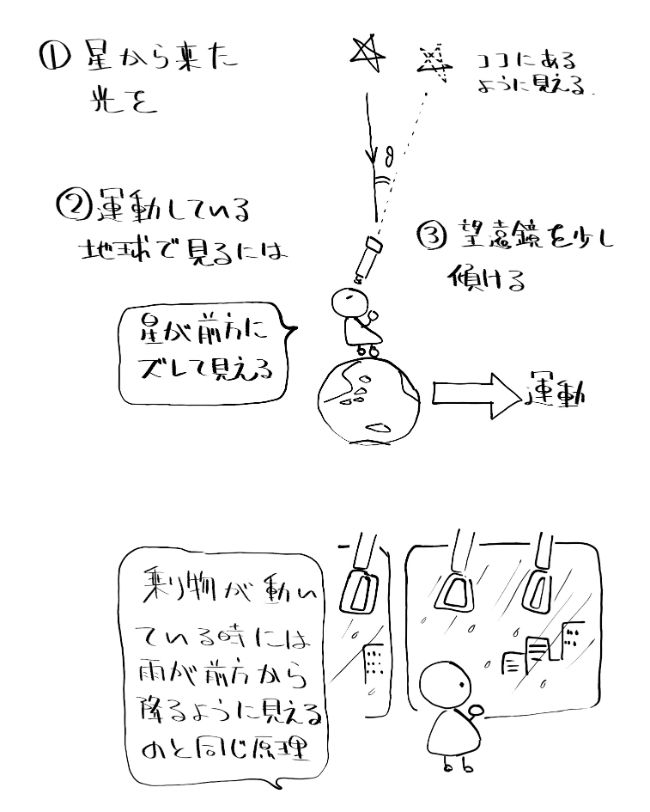 ① 星から来た
光を
ココにある
ように見える.
θ
② 運動している
地球で見るには
③ 望遠鏡を少し
傾ける
星が前方に
ズレて見える
運動
乗り物が動い
ている時には
雨が前方から
降るように見える
のと同じ原理